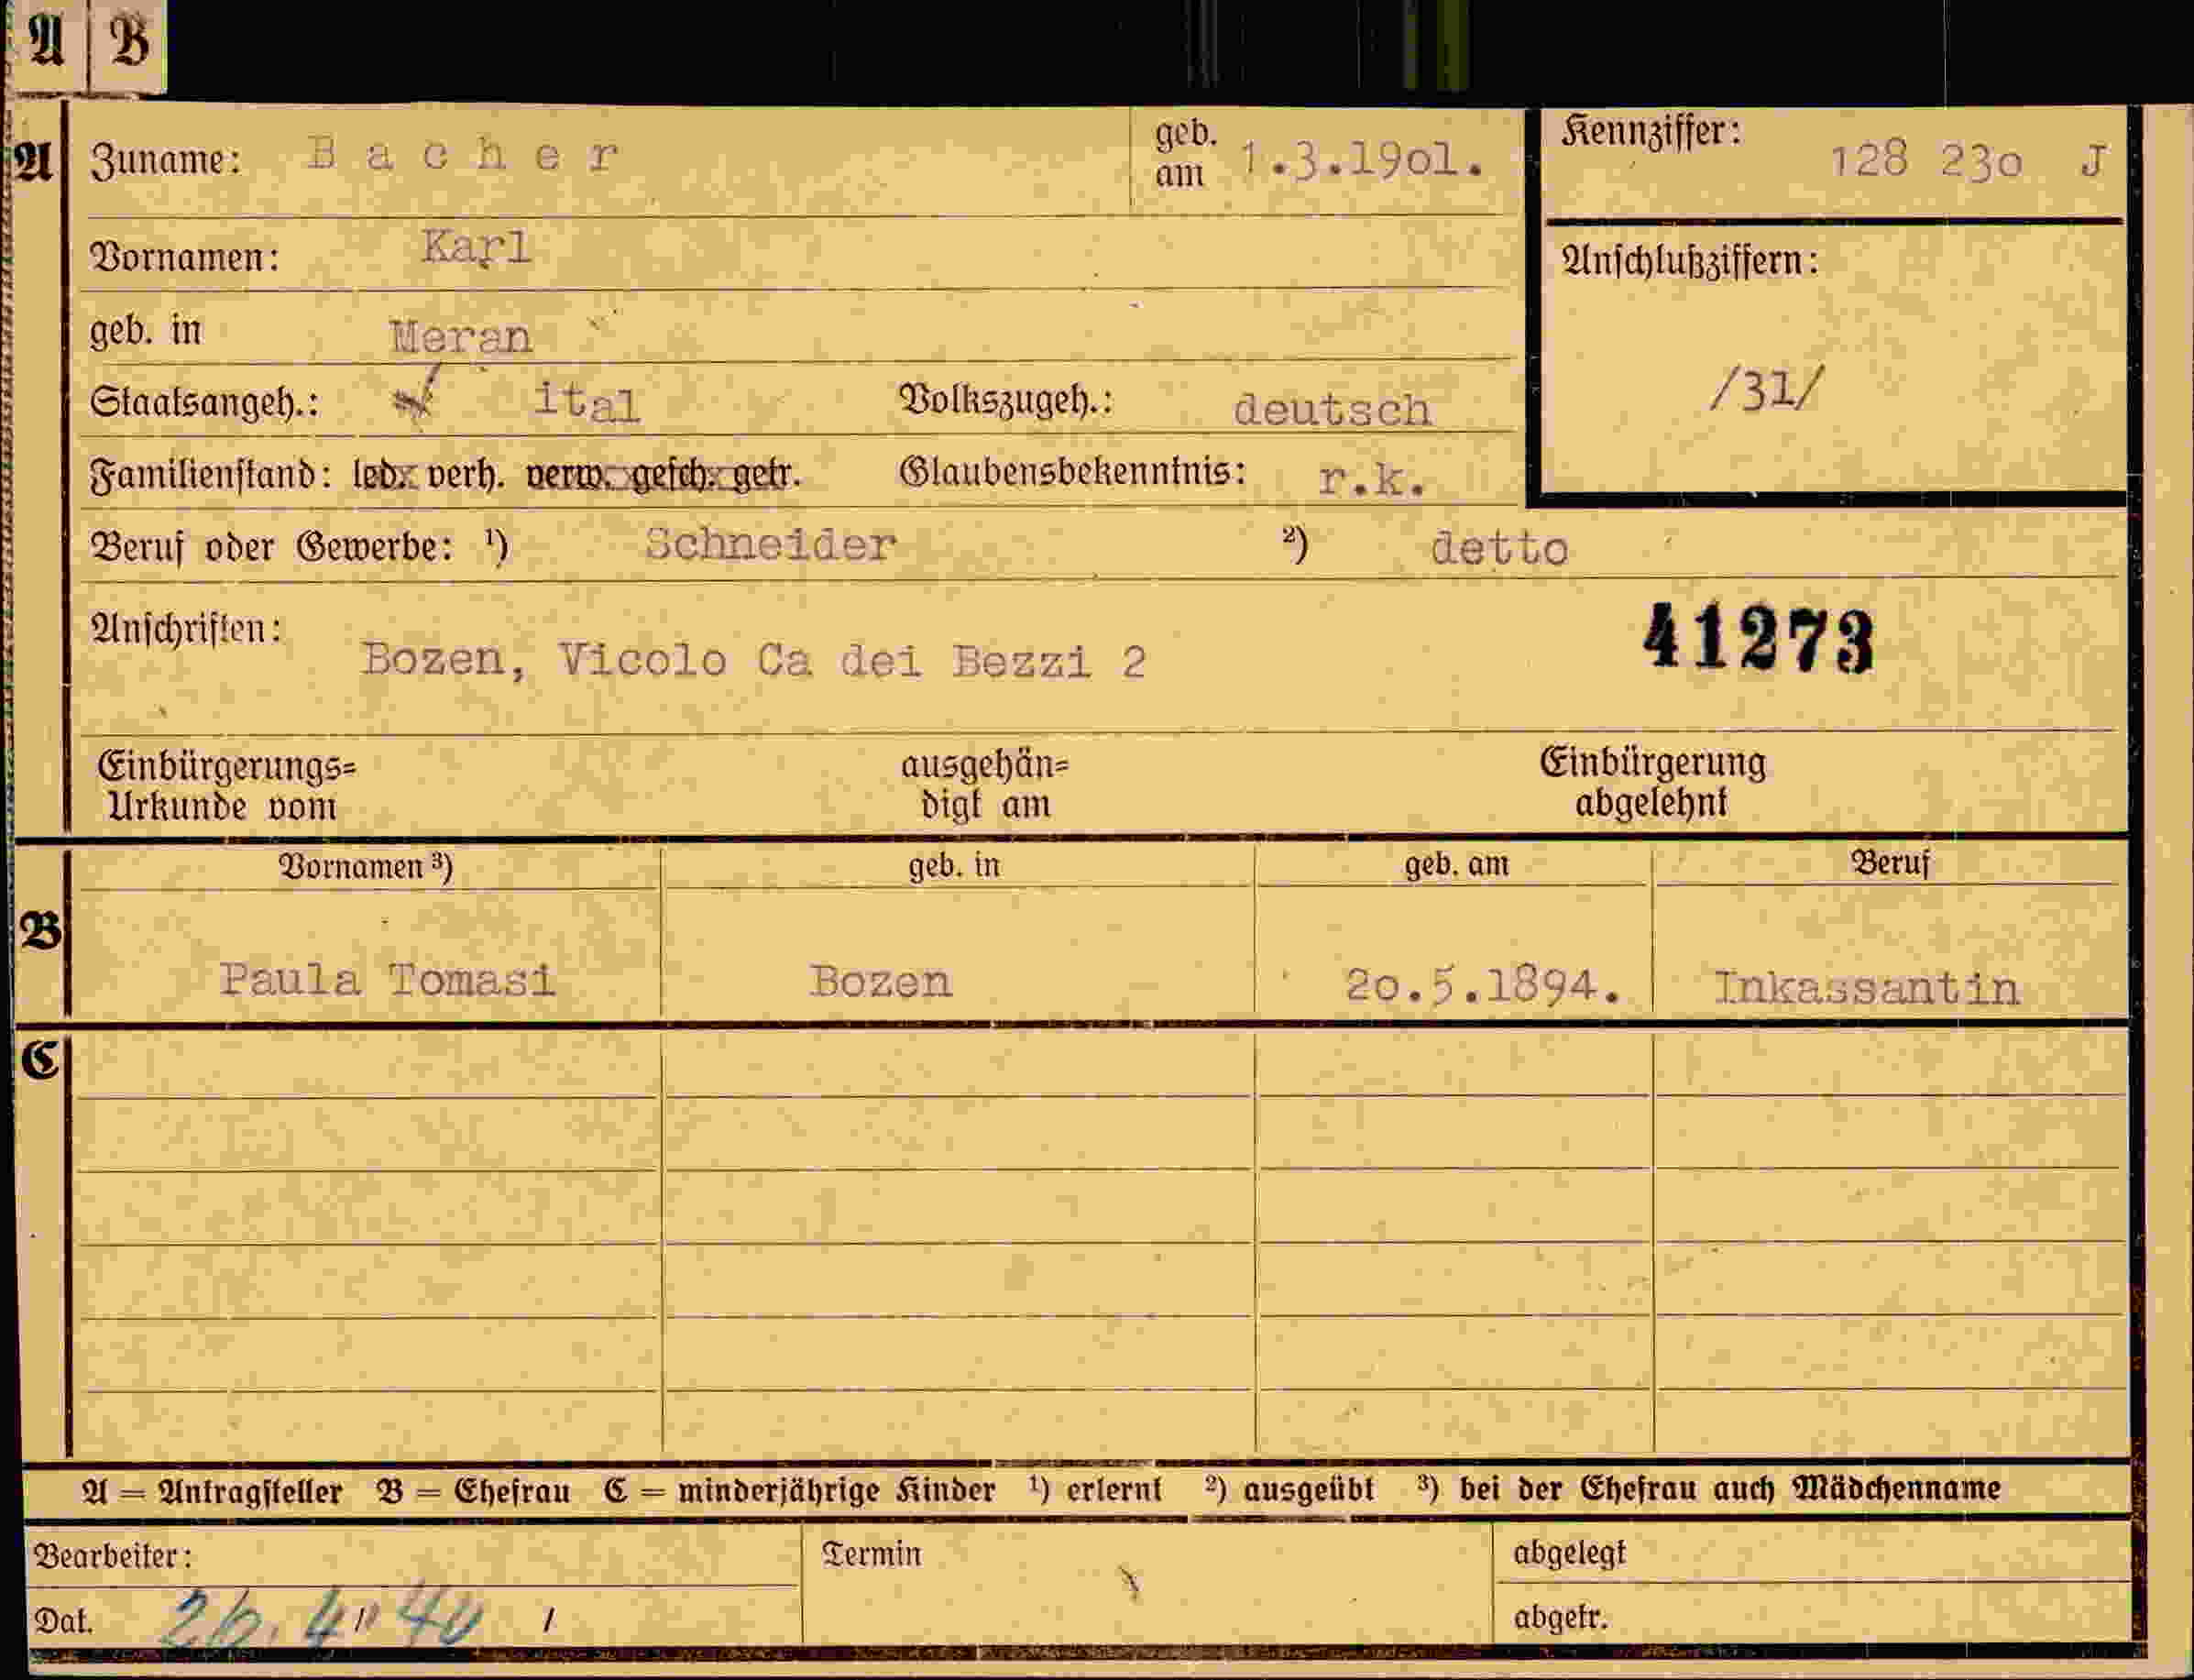 A B
A Zuname: Bacher geb. am 1.3.19o1. Kennziffer: 128 23o J
Vornamen: Karl
Anschlußziffern:
geb. in Meran
/31/
Staatsangeh.: ital Volkszugeh.: deutsch
Familienstand: led. verh. verw. gesch. getr. Glaubensbekenntnis: r.k.
Beruf oder Gewerbe: ¹) Schneider ²) detto
Anschriften: Bozen, Vicolo Ca dei Bezzi 2 41273
Einbürgerungs= ausgehän= Einbürgerung
Urkunde vom digt am abgelehnt
Vornamen ³) geb. in geb. am Beruf
B
Paula Tomasi Bozen 2o.5.1894. Inkassantin
C
A = Antragsteller B = Ehefrau C = minderjährige Kinder ¹) erlernt ²) ausgeübt ³) bei der Ehefrau auch Mädchenname
Bearbeiter: Termin abgelegt
Dat. 26. 4" 40 / abgetr.